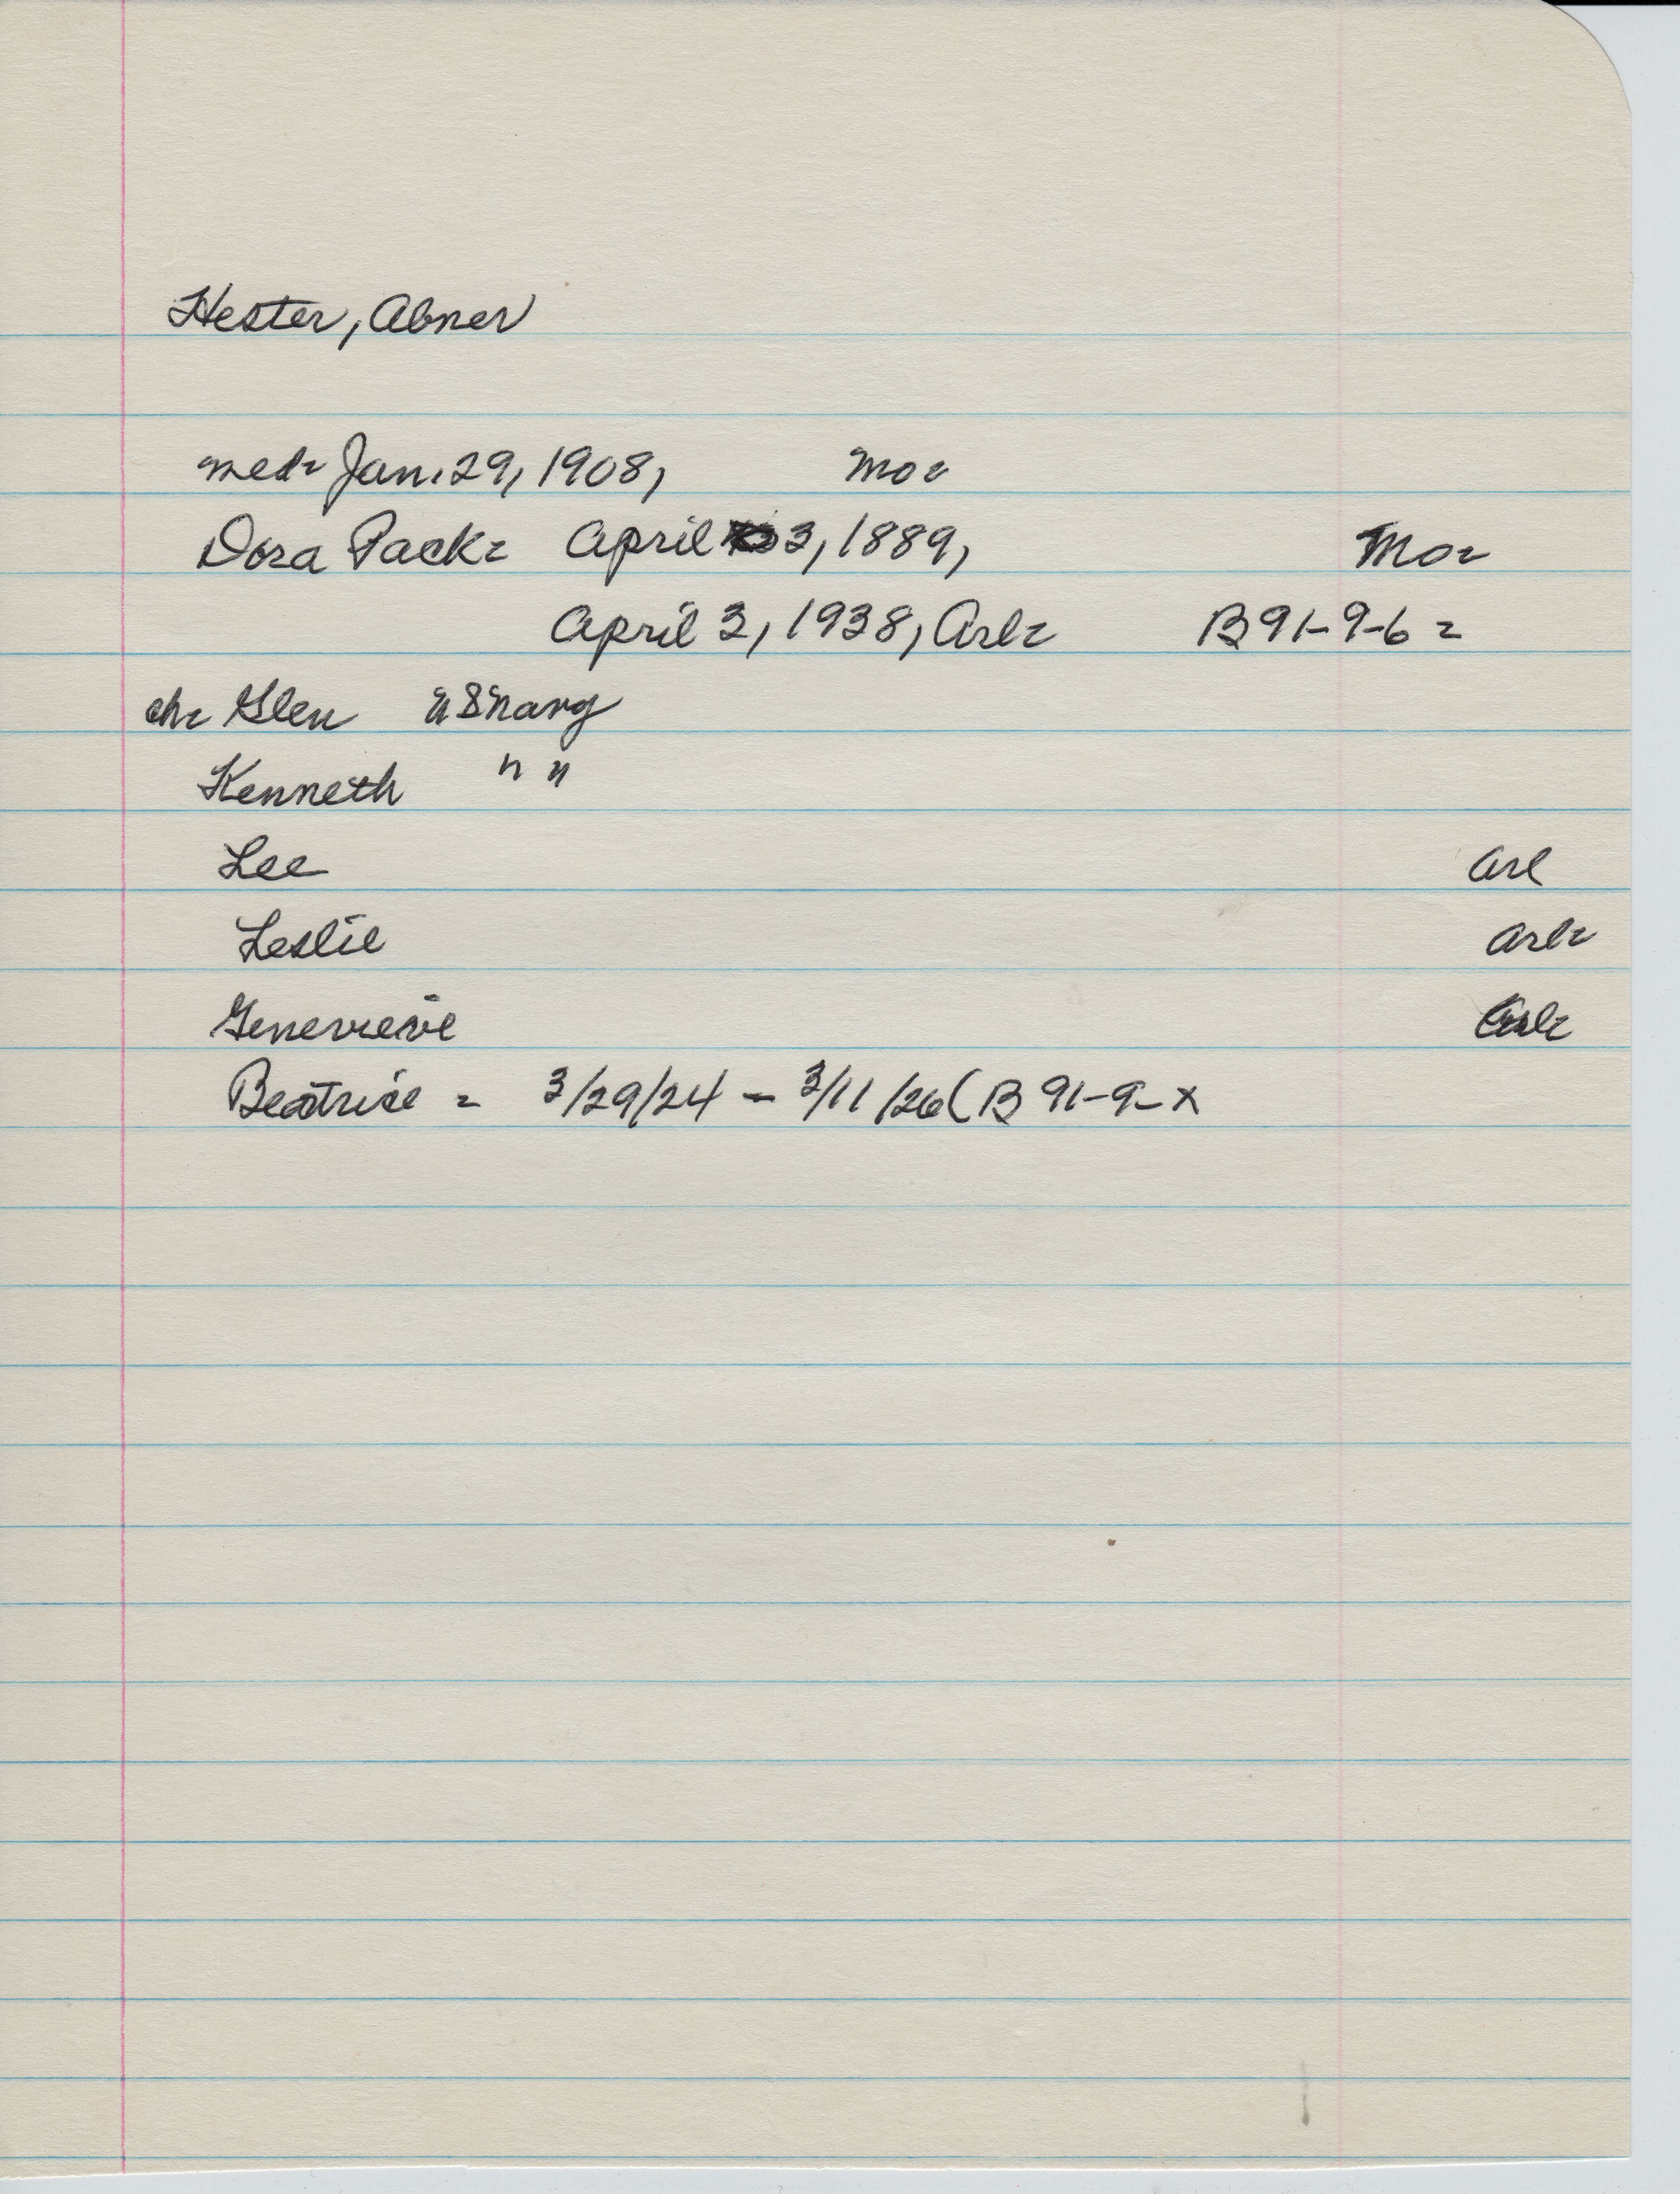 Hester, Abner
med= Jan. 29, 1908, Mo=
Dora Pack= April 3, 1889, Mo=
April 3, 1938, Arl= B 91-9-6 =
ch= Glen US Navy
Kenneth " "
Lee Arl
Leslie Arl=
Genevieve Arl=
Beatrice = 3/29/24 - 3/11/26 (B 91-9-X